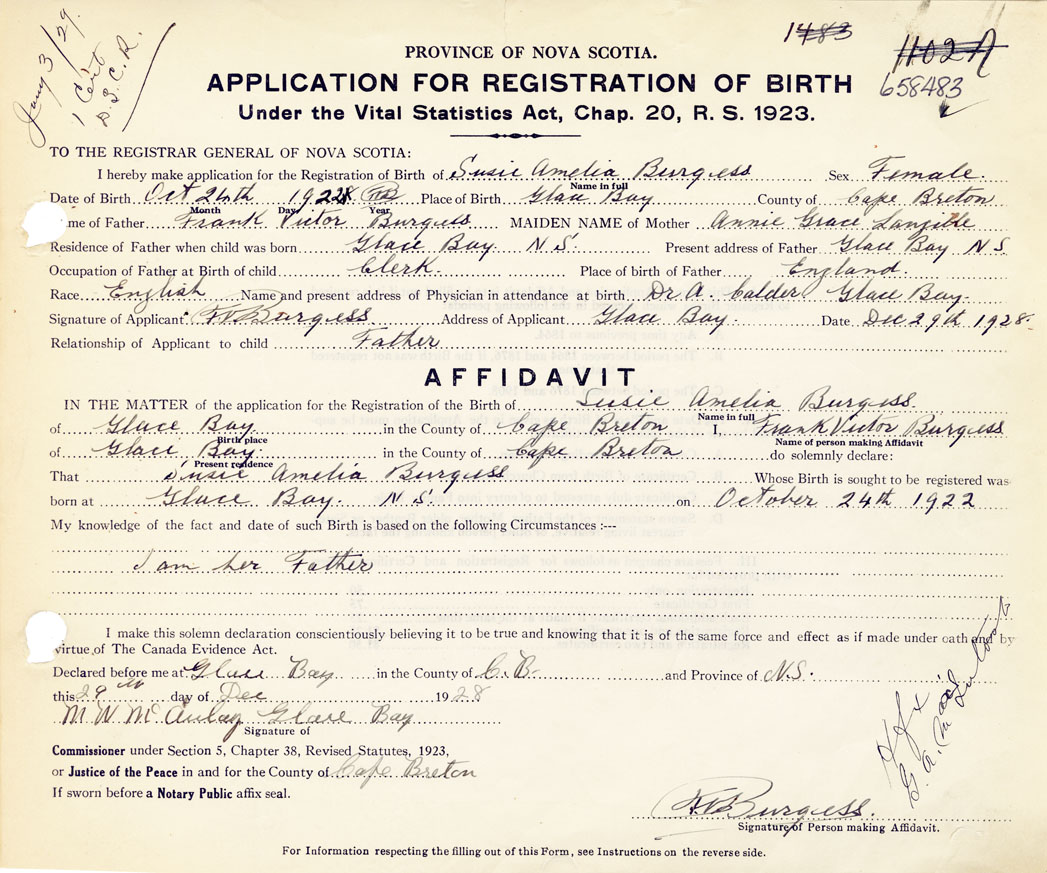 Jany 3/29.
1 Cert
D.S.C.R.
1483
1102A
658483
PROVINCE OF NOVA SCOTIA.
APPLICATION FOR REGISTRATION OF BIRTH
Under the Vital Statistics Act, Chap. 20, R. S. 1923.
TO THE REGISTRAR GENERAL OF NOVA SCOTIA:
I hereby make application for the Registration of Birth of Susie Amelia Burgess Sex Female.
Name in full
Date of Birth Oct 24th 1922 Place of Birth Glace Bay County of Cape Breton
Month Day Year
me of Father Frank Victor Burgess MAIDEN NAME of Mother Annie Grace Langille
Residence of Father when child was born Glace Bay. N.S. Present address of Father Glace Bay N S
Occupation of Father at Birth of child Clerk. Place of birth of Father England.
Race English Name and present address of Physician in attendance at birth Dr A. Calder Glace Bay.
Signature of Applicant FVBurgess Address of Applicant Glace Bay. Date Dec 29th 1928.
Relationship of Applicant to child Father
AFFIDAVIT
IN THE MATTER of the application for the Registration of the Birth of Susie Amelia Burgess.
Name in full
of Glace Bay in the County of Cape Breton I Frank Victor Burgess
Birth place Name of person making Affidavit
of Glace Bay in the County of Cape Breton do solemnly declare:
Present residence
That Susie Amelia Burgess Whose Birth is sought to be registered was
born at Glace Bay. N S. on October 24th 1922
My knowledge of the fact and date of such Birth is based on the following Circumstances :---
I am her Father
I make this solemn declaration conscientiously believing it to be true and knowing that it is of the same force and effect as if made under oath and by
virtue of The Canada Evidence Act.
Declared before me at Glace Bay in the County of C.B. and Province of N.S.
this 29th day of Dec 1928
M W McAulay Glace Bay
Signature of
Commissioner under Section 5, Chapter 38, Revised Statutes, 1923,
or Justice of the Peace in and for the County of Cape Breton
If sworn before a Notary Public affix seal.
FVBurgess.
Signature of Person making Affidavit.
For Information respecting the filling out of this Form, see Instructions on the reverse side.